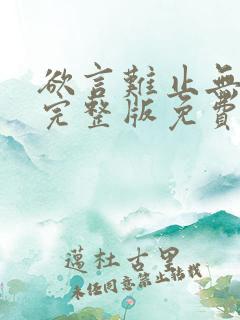 欲言難止無
完整版免費
蓮杜古里
未经同意禁止转载